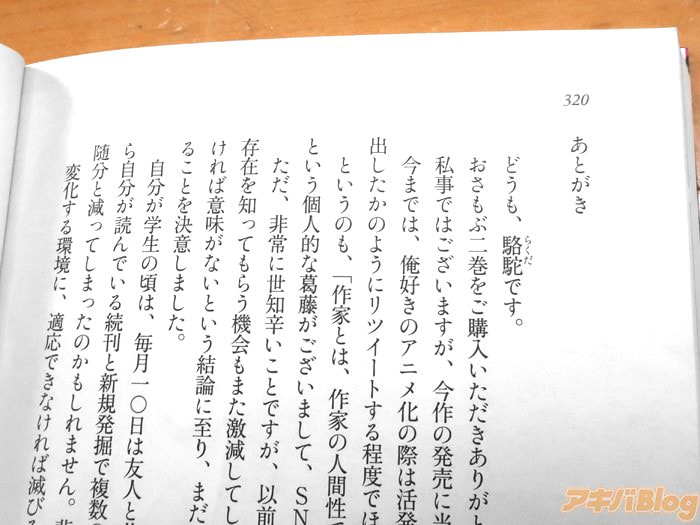 320
あとがき
どうも、駱駝です。
らくだ
おさもぶ二巻をご購入いただきありがと
私事ではございますが、今作の発売に当
今までは、俺好きのアニメ化の際は活発
出したかのようにリツイートする程度では
というのも、「作家とは、作家の人間性で
という個人的な葛藤がございまして、SN
ただ、非常に世知辛いことですが、以前
存在を知ってもらう機会もまた激減してし
ければ意味がないという結論に至り、まだ
ることを決意しました。
自分が学生の頃は、毎月一〇日は友人と
ら自分が読んでいる続刊と新規発掘で複数の
随分と減ってしまったのかもしれません。
変化する環境に、適応できなければ滅びる
アキバBlog